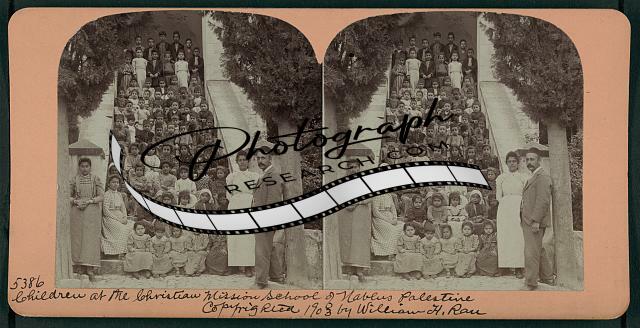 Photograph
RESEARCH.COM
5386
Children at the Christian Mission School of Nablus Palestine
Copyrighted 1903 by William H. Rau